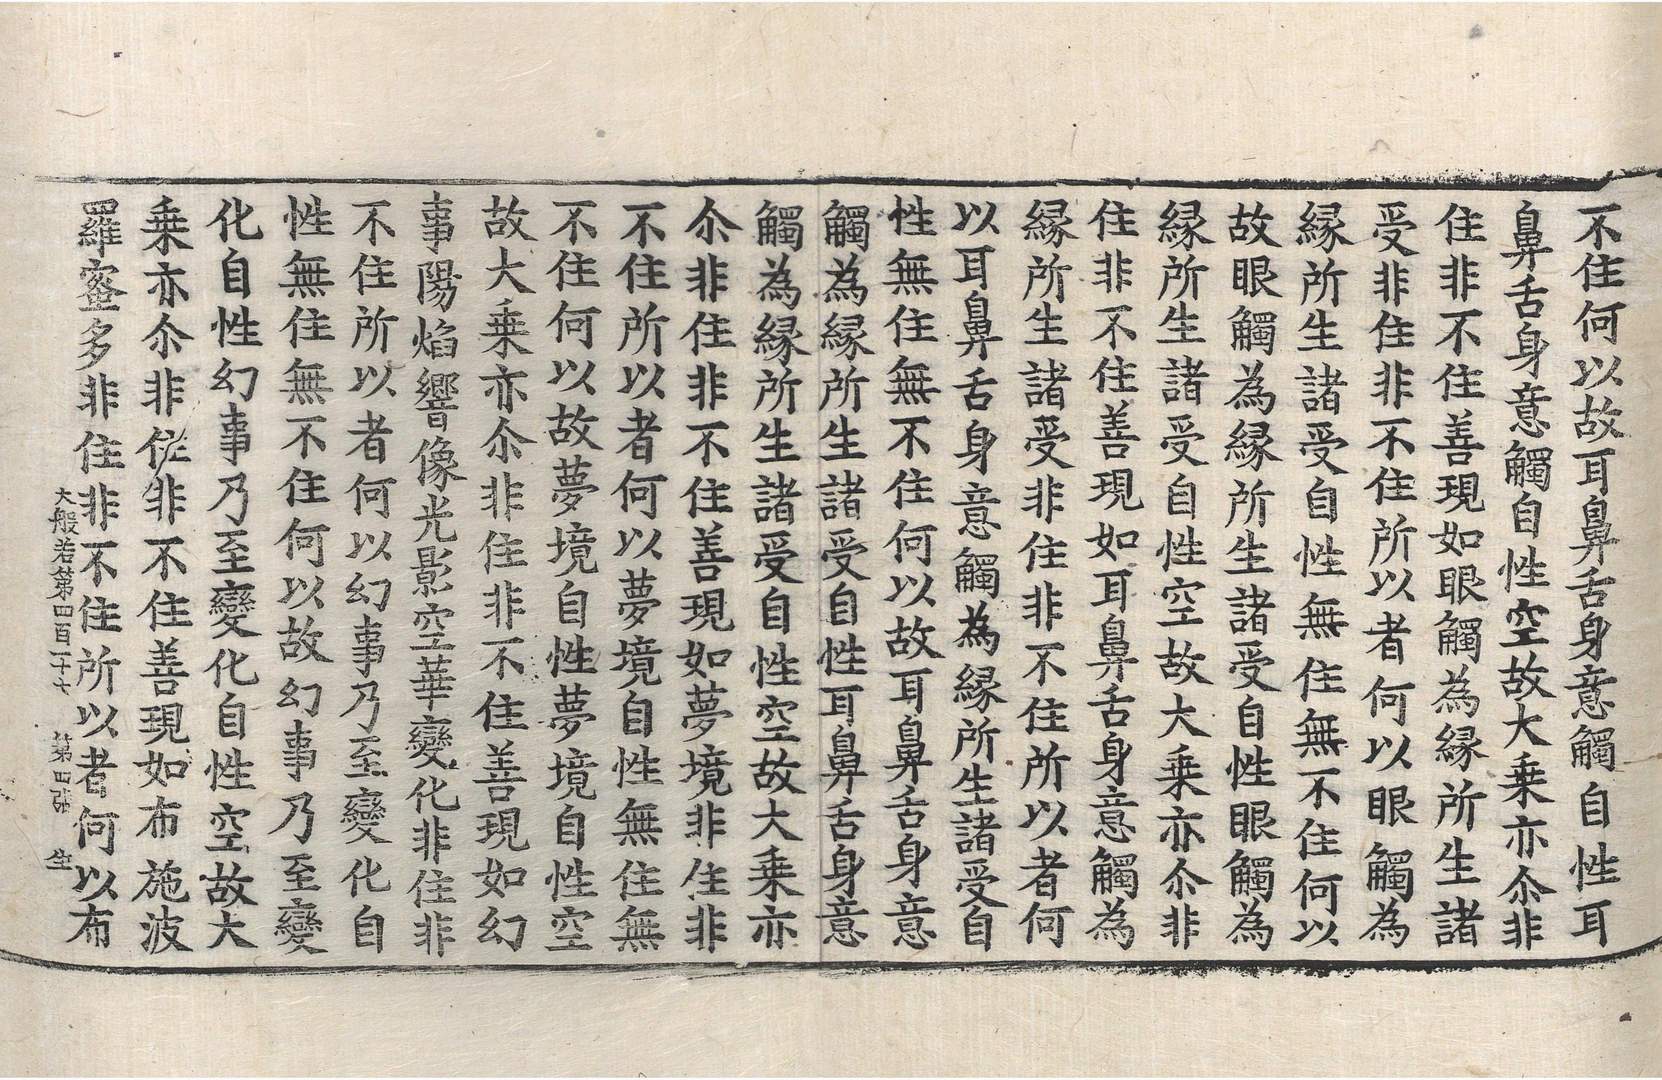 不住何以故耳鼻舌身意觸自性耳
鼻舌身意觸自性空故大乗亦尒非
住非不住善現如眼觸為縁所生諸
受非住非不住所以者何以眼觸為
縁所生諸受自性無住無不住何以
故眼觸為縁所生諸受自性眼觸為
縁所生諸受自性空故大乗亦尒非
住非不住善現如耳鼻舌身意觸為
縁所生諸受非住非不住所以者何
以耳鼻舌身意觸為縁所生諸受自
性無住無不住何以故耳鼻舌身意
觸為縁所生諸受自性耳鼻舌身意
觸為縁所生諸受自性空故大乗亦
尒非住非不住善現如夢境非住非
不住所以者何以夢境自性無住無
不住何以故夢境自性夢境自性空
故大乗亦尒非住非不住善現如幻
事陽焰響像光影空華變化非住非
不住所以者何以幻事乃至變化自
性無住無不住何以故幻事乃至變
化自性幻事乃至變化自性空故大
乗亦尒非住非不住善現如布施波
羅蜜多非住非不住所以者何以布
大般若第四百一十七 第四 生